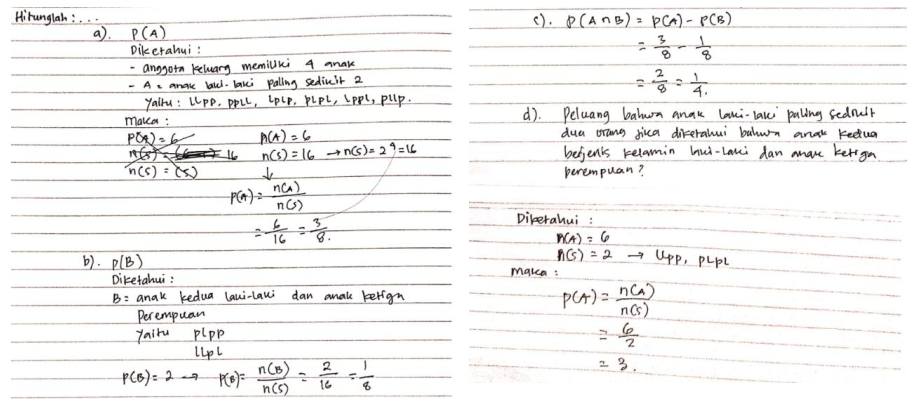 Hitunglah : . . .
a). P(A)
Diketahui :
- anggota keluarg memiliki 4 anak
- A = anak laki-laki paling sedikit 2
Yaitu : LLPP, PPLL, LPLP, PLPL, LPPL, PLLP.
maka :
P(A) = 6
n(S) = 16
n(S) = (S)
n(A) = 6
n(S) = 16 → n(S) = 2^4 = 16
↓
P(A) = n(A) / n(S)
= 6/16 = 3/8.
b). P(B)
Diketahui :
B = anak kedua laki-laki dan anak ketiga
Perempuan
Yaitu PLPP
LLPL
P(B) = 2 → P(B) = n(B)/n(S) = 2/16 = 1/8
c). P(A ∩ B) = P(A) - P(B)
= 3/8 - 1/8
= 2/8 = 1/4.
d). Peluang bahwa anak laki-laki paling sedikit
dua orang jika diketahui bahwa anak kedua
berjenis kelamin laki-laki dan anak ketiga
perempuan ?
Diketahui :
n(A) = 6
n(S) = 2 → LLPP, PLPL
maka :
P(A) = n(A) / n(S)
= 6/2
= 3.